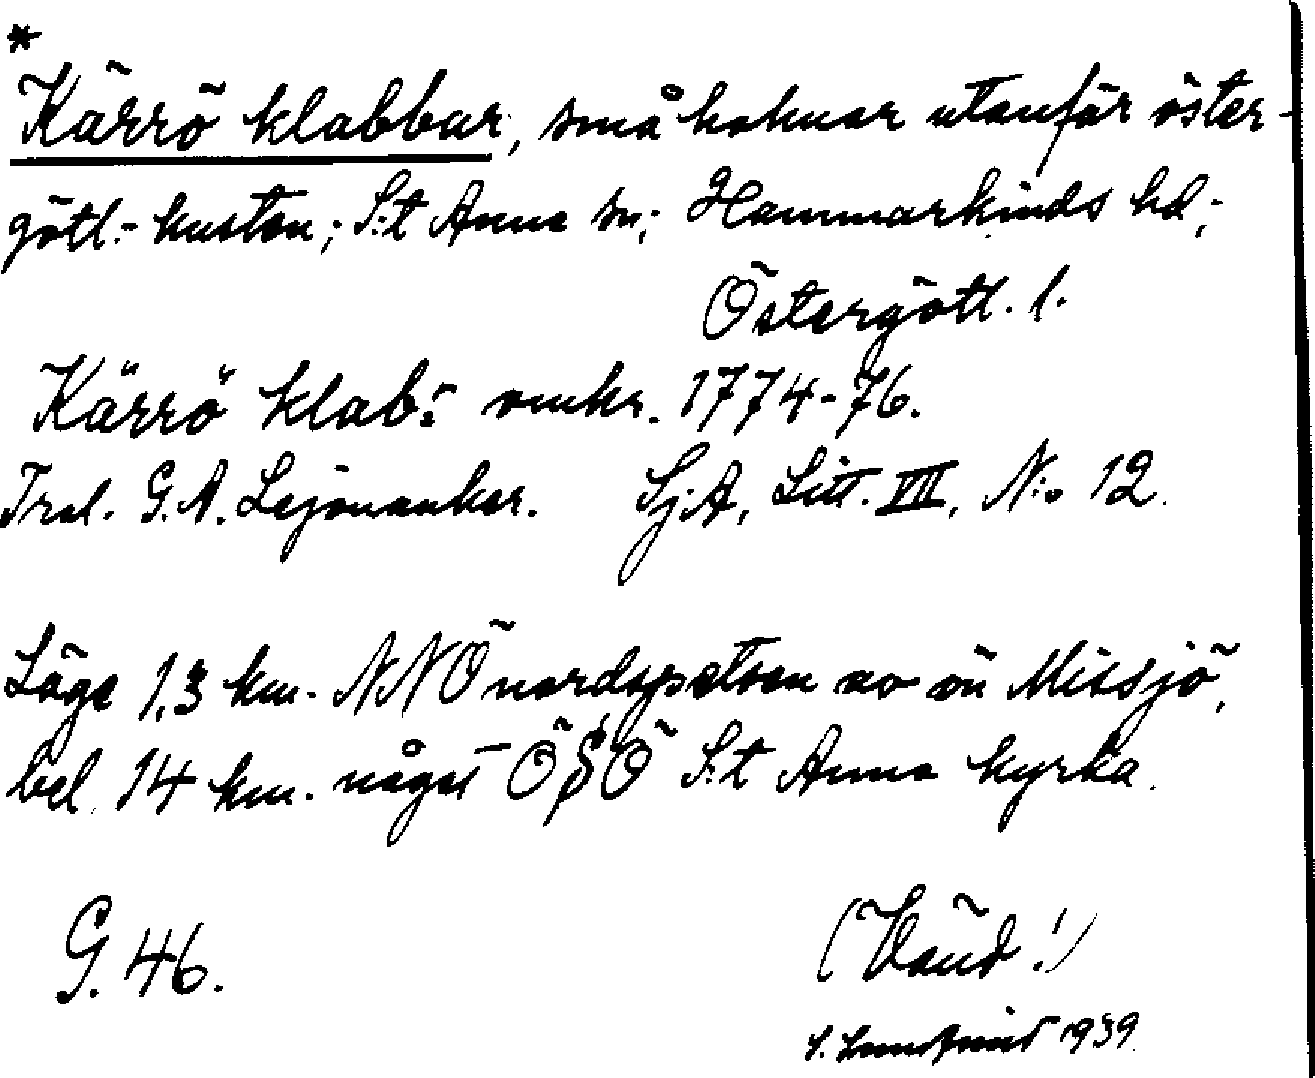 *
Kärrö klabbar, små holmar utanför öster-
götl.-kusten; S:t Anna sn; Hammarkinds hd;
Östergötl. l.
Kärrö klab: omkr. 1774-76.
Trol. G. A. Lejonanker. Sj.A, Litt. VII, N:o 12.
Läge 1,3 km. NNÖ nordspetsen av ön Missjö,
bel. 14 km. något ÖSÖ S:t Anna kyrka.
G. 46.
(Vänd!)
1939